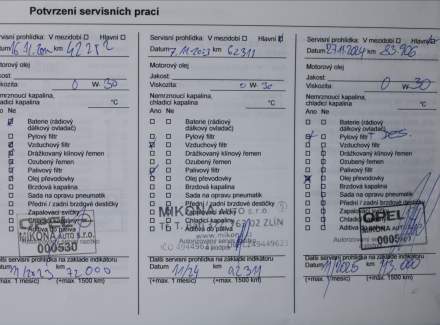 Potvrzení servisních prací
Servisní prohlídka: V mezidobí Hlavní
Datum 16.11.2022 km 42252
Motorový olej
Jakost:
Viskozita 0 W- 30
Nemrznoucí kapalina,
chladicí kapalina °C
Ano Ne
Baterie (rádiový
dálkový ovladač)
Pylový filtr
Vzduchový filtr
Drážkovaný klínový řemen
Ozubený řemen
Palivový filtr
Olej převodovky
Brzdová kapalina
Sada na opravu pneumatik
Přední / zadní brzdové destičky
Zapalovací svíčky
Aditiva do paliva
MIKONA AUTO s.r.o.
000530
Další servisní prohlídka na základě indikátoru
11/2023 km 72000
(+max. 1 měsíc) (+/max. 1500 km)
Servisní prohlídka: V mezidobí Hlavní
Datum 7.11.2023 km 62311
Motorový olej
Jakost:
Viskozita 0 W- 30
Nemrznoucí kapalina,
chladicí kapalina °C
Ano Ne
Baterie (rádiový
dálkový ovladač)
Pylový filtr
Vzduchový filtr
Drážkovaný klínový řemen
Ozubený řemen
Palivový filtr
Olej převodovky
Brzdová kapalina
Sada na opravu pneumatik
Přední / zadní brzdové destičky
MIKONA AUTO s.r.o.
ZLÍN
Další servisní prohlídka na základě indikátoru
Datum 11/24 km 92311
(+max. 1 měsíc) (+/max. 1500 km)
Servisní prohlídka: V mezidobí Hlavní
Datum 27.11.2024 km 83.906
Motorový olej
Jakost:
Viskozita 0 W- 30
Nemrznoucí kapalina,
chladicí kapalina °C
Ano Ne
Baterie (rádiový
dálkový ovladač)
Pylový filtr
Vzduchový filtr
Drážkovaný klínový řemen
Ozubený řemen
Palivový filtr
Olej převodovky
Brzdová kapalina
Sada na opravu pneumatik
Přední / zadní brzdové destičky
OPEL
MIKONA AUTO
Další servisní prohlídka na základě indikátoru
Datum 11/2025 km 113.000
(+max. 1 měsíc) (+/max. 1500 km)